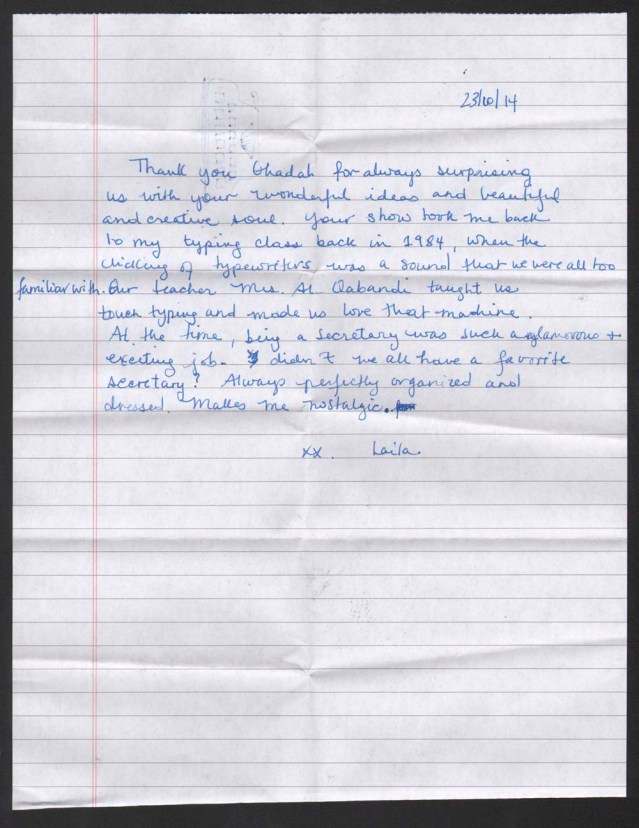 23/10/14
Thank you Ghadah for always surprising
us with your wonderful ideas and beautiful
and creative soul. Your show took me back
to my typing class back in 1984, when the
clicking of typewriters was a sound that we were all too
familiar with. Our teacher Mrs. Al Qabandi taught us
touch typing and made us love that machine.
At the time, being a secretary was such a glamorous +
exciting job. didn't we all have a favorite
secretary? Always perfectly organized and
dressed. Makes me nostalgic.
xx. Laila